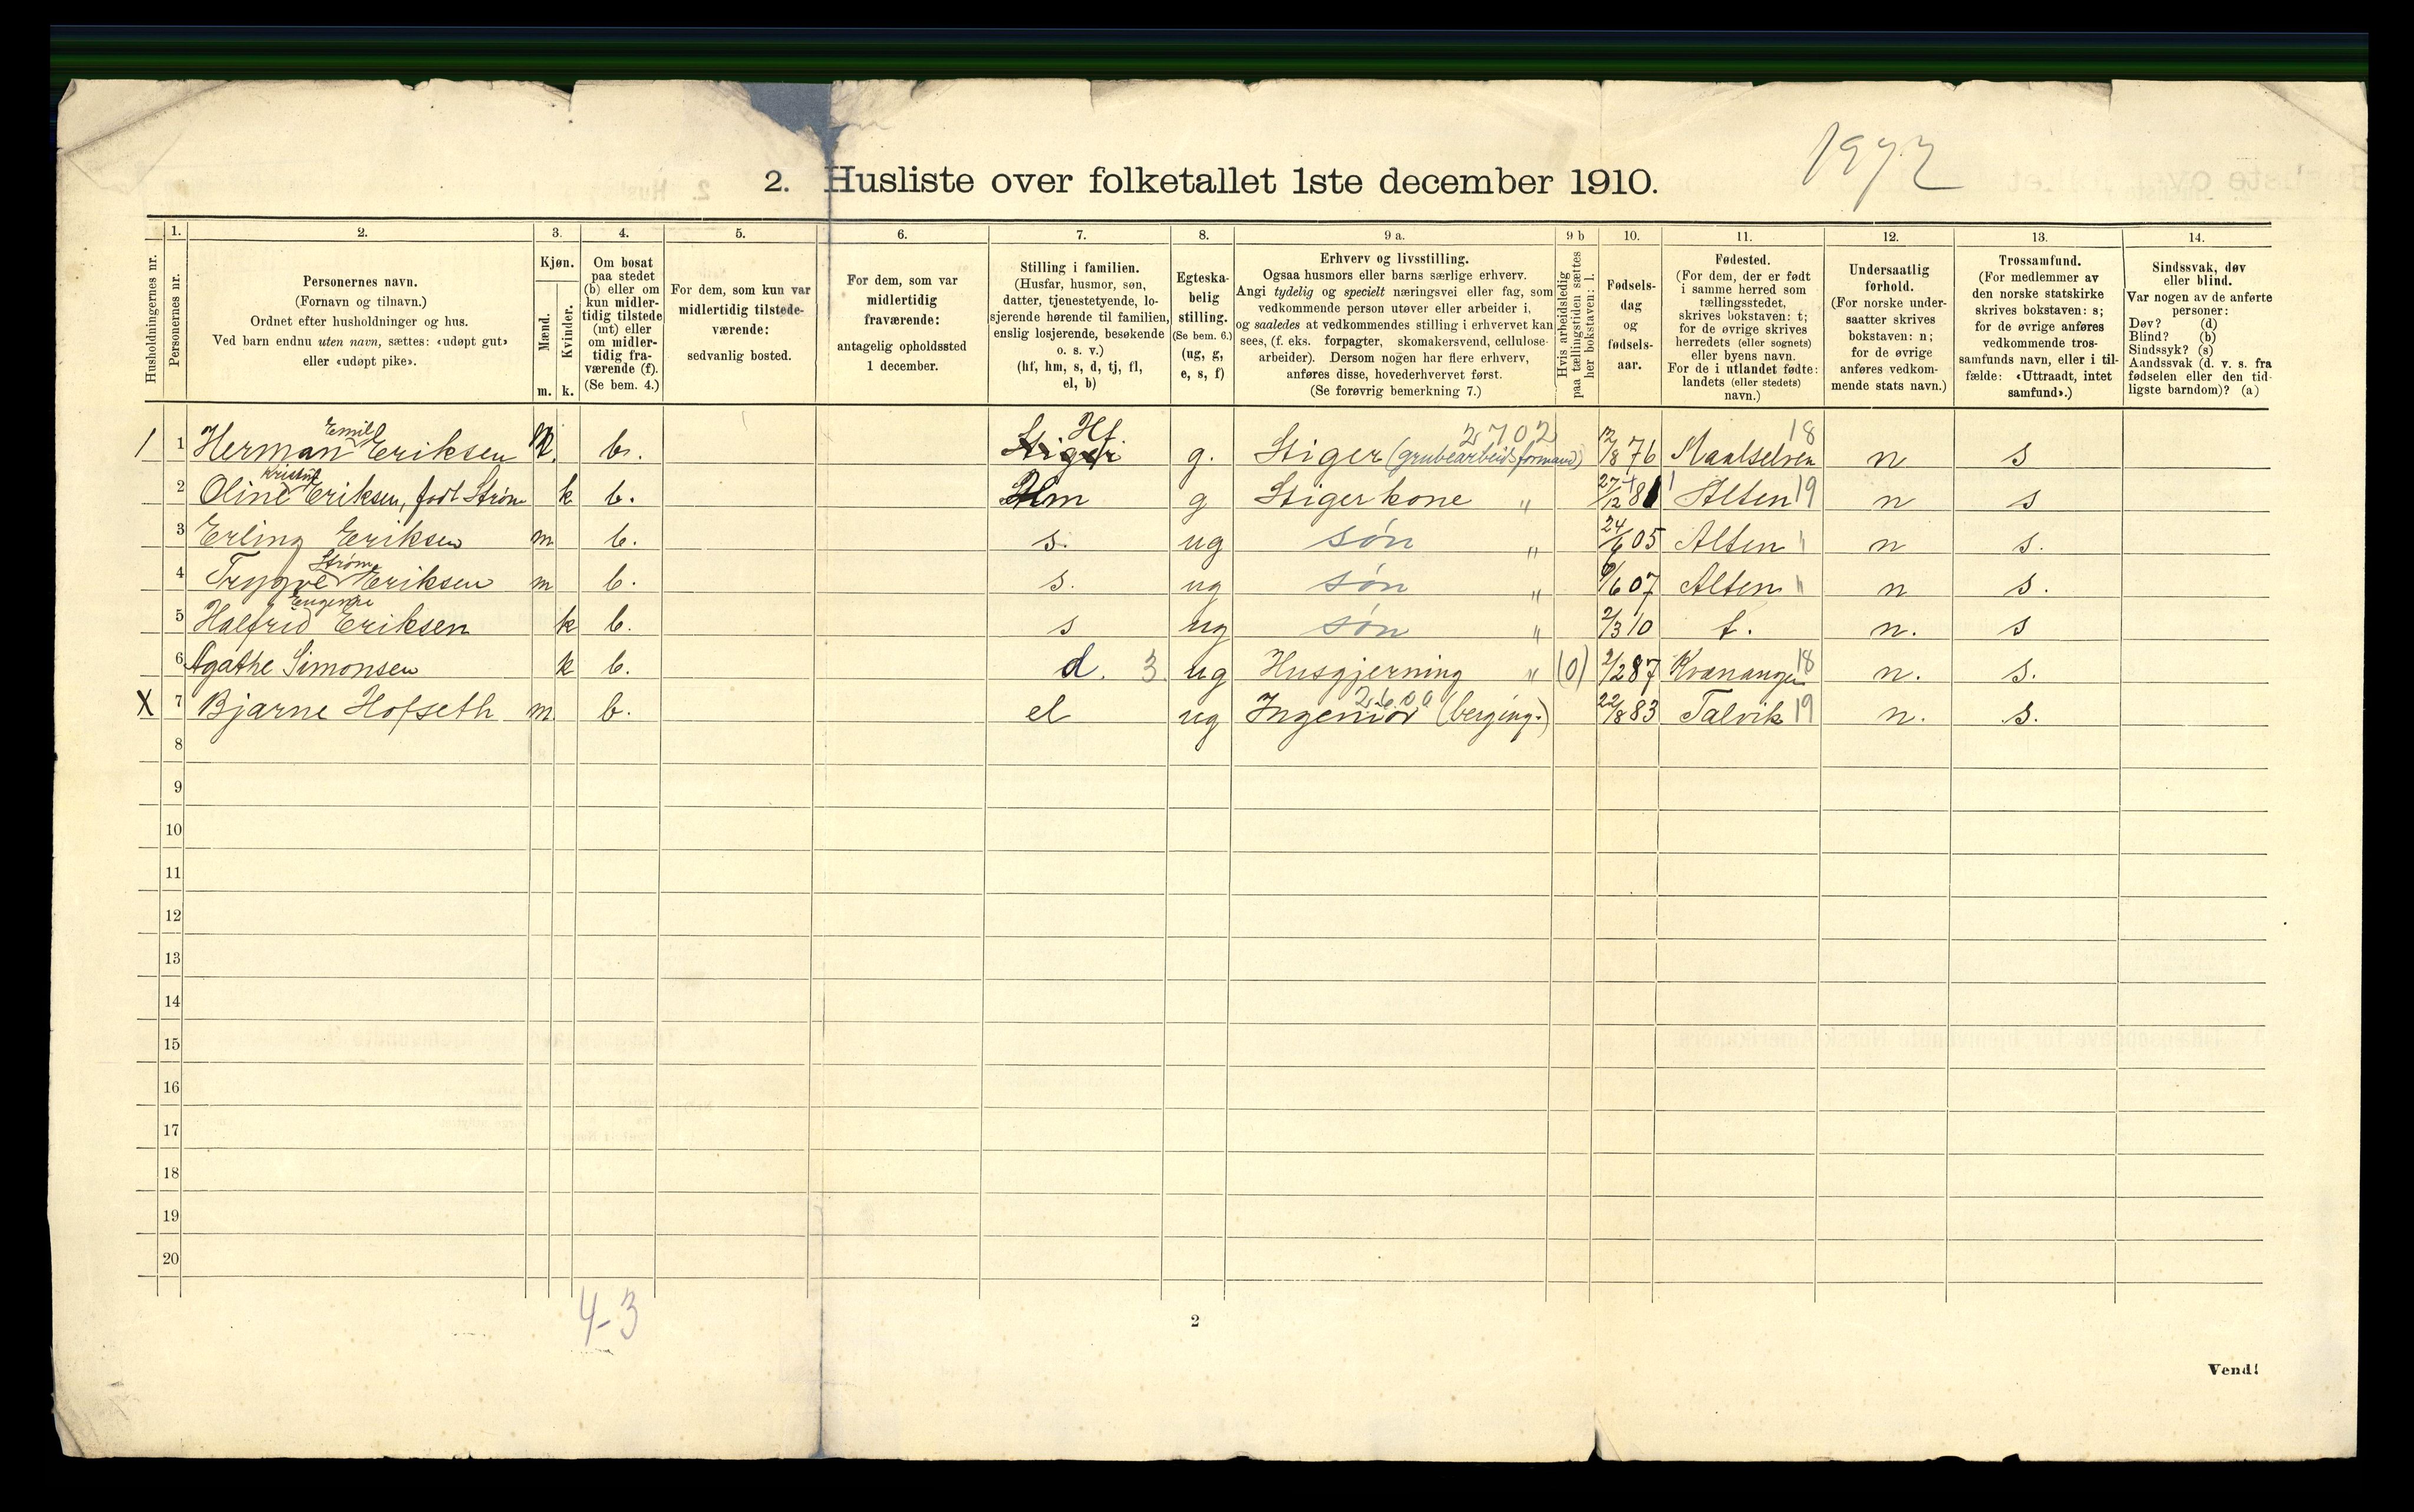 1972
2. Husliste over folketallet 1ste december 1910.
1. 2. 3. 4. 5. 6. 7. 8. 9 a. 9 b 10. 11. 12. 13. 14.
Husholdningernes nr.
Personernes nr.
Personernes navn.
(Fornavn og tilnavn.)
Ordnet efter husholdninger og hus.
Ved barn endnu uten navn, sættes: «udøpt gut»
eller «udøpt pike».
Kjøn.
Mænd.
Kvinder.
m. k.
Om bosat
paa stedet
(b) eller om
kun midler-
tidig tilstede
(mt) eller
om midler-
tidig fra-
værende (f).
(Se bem. 4.)
For dem, som kun var
midlertidig tilstede-
værende:
sedvanlig bosted.
For dem, som var
midlertidig
fraværende:
antagelig opholdssted
1 december.
Stilling i familien.
(Husfar, husmor, søn,
datter, tjenestetyende, lo-
sjerende hørende til familien,
enslig losjerende, besøkende
o. s. v.)
(hf, hm, s, d, tj, fl,
el, b)
Egteska-
belig
stilling.
(Se bem. 6.)
(ug, g,
e, s, f)
Erhverv og livsstilling.
Ogsaa husmors eller barns særlige erhverv.
Angi tydelig og specielt næringsvei eller fag, som
vedkommende person utøver eller arbeider i,
og saaledes at vedkommendes stilling i erhvervet kan
sees, (f. eks. forpagter, skomakersvend, cellulose-
arbeider). Dersom nogen har flere erhverv,
anføres disse, hovederhvervet først.
(Se forøvrig bemerkning 7.)
Hvis arbeidsledig
paa tællingstiden sættes
her bokstaven: l.
Fødsels-
dag
og
fødsels-
aar.
Fødested.
(For dem, der er født
i samme herred som
tællingsstedet,
skrives bokstaven: t;
for de øvrige skrives
herredets (eller sognets)
eller byens navn.
For de i utlandet fødte:
landets (eller stedets)
navn.)
Undersaatlig
forhold.
(For norske under-
saatter skrives
bokstaven: n;
for de øvrige
anføres vedkom-
mende stats navn.)
Trossamfund.
(For medlemmer av
den norske statskirke
skrives bokstaven: s;
for de øvrige anføres
vedkommende tros-
samfunds navn, eller i til-
fælde: «Uttraadt, intet
samfund».)
Sindssvak, døv
eller blind.
Var nogen av de anførte
personer:
Døv? (d)
Blind? (b)
Sindssyk? (s)
Aandssvak (d. v. s. fra
fødselen eller den tid-
ligste barndom)? (a)
Emil Hf. 2702 18
1 1 Herman Eriksen m. b. Stiger g. Stiger (grubearbeidsformand) 12/8 76 Maalselven n s
Kristine
2 Oline Eriksen, født Strøm k b. Hm g Stigerkone " 27/12 81 Alten 19 n s
3 Erling Eriksen m b. s. ug søn " 24/6 05 Alten " n s.
Strøm
4 Trygve Eriksen m b. s. ug søn " 9/6 07 Alten " n s.
Eugenie
5 Halfrid Eriksen k b. s ug søn " 2/3 10 t. n. s
6 Agathe Simonsen k b. d. 3 ug Husgjerning " (0) 2/2 87 Kvænangen 18 n. s.
2600
X 7 Bjarne Hofseth m b. el ug Ingeniør (berging.) 22/8 83 Talvik 19 n. s.
8
9
10
11
12
13
14
15
16
17
18
19
20
4-3
2
Vend!